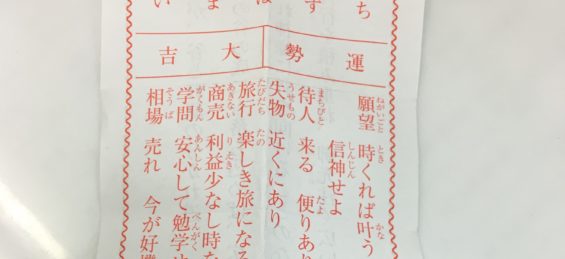 ち
す
ま
い
運勢 大吉
願望 時くれば叶う
信神せよ
待人 来る 便りあり
失物 近くにあり
旅行 楽しき旅になる
商売 利益少なし時な
学問 安心して勉学せ
相場 売れ 今が好機